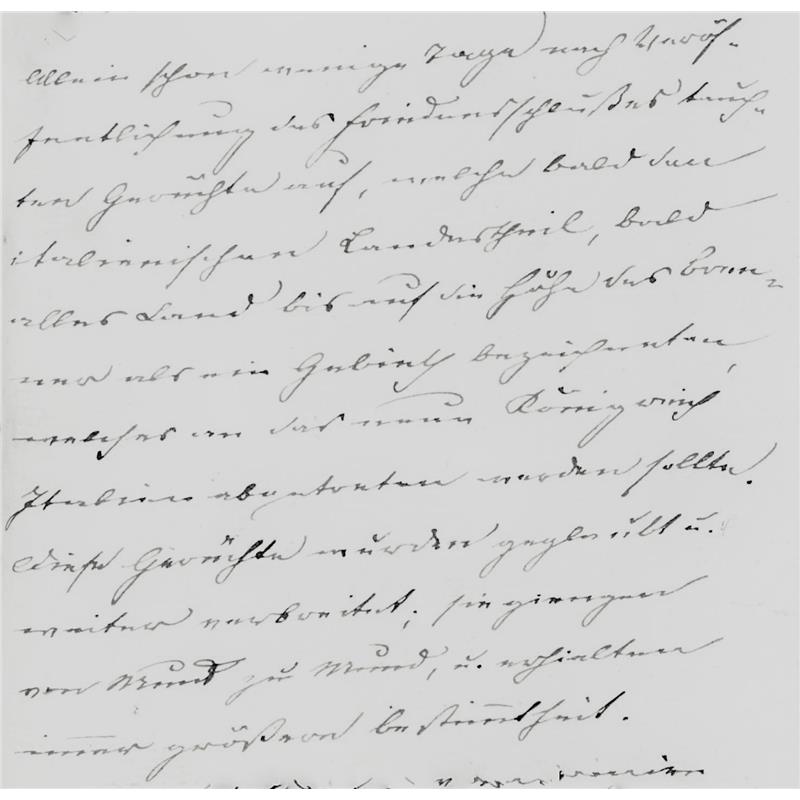 Allein schon wenige Tage nach Veröf-
fentlichung des Friedensschlußes tauch-
ten Gerüchte auf, welche bald den
italienischen Landestheil, bald
alles Land bis auf die Höhe des Bren-
ner als ein Gebieth bezeichneten,
welches an das neue Königreich
Italien abgetreten werden sollte.
Diese Gerüchte wurden geglaubt u.
weiter verbreitet; sie giengen
von Mund zu Mund, u. erhielten
immer größere Bestimtheit.